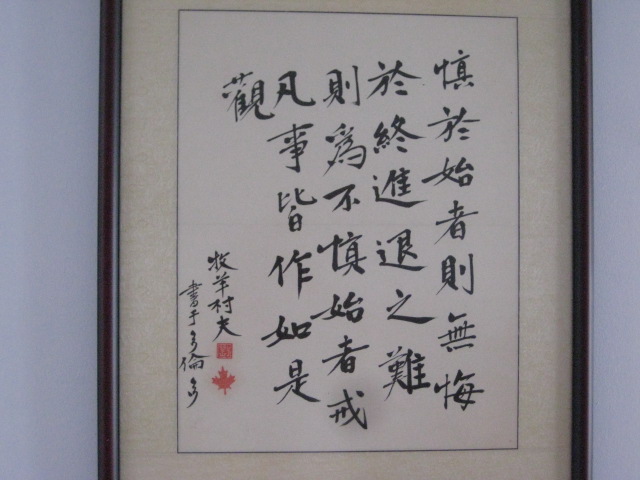 慎於始者則無悔
於終進退之難
則為不慎始者戒
凡事皆作如是
觀
牧羊村夫
書于多倫多